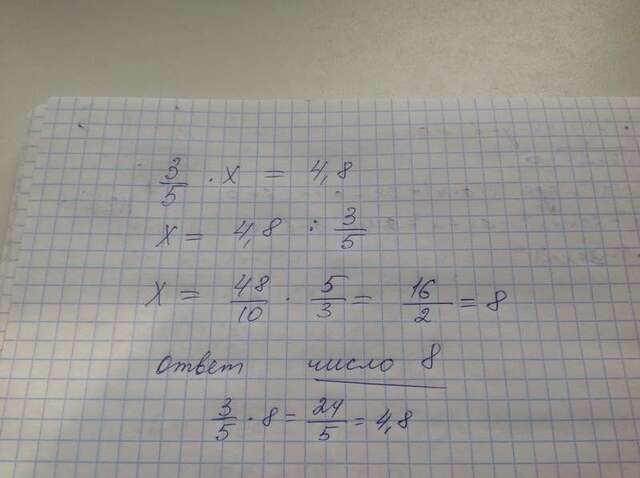 3/5 · x = 4,8
x = 4,8 : 3/5
x = 48/10 · 5/3 = 16/2 = 8
ответ число 8
3/5 · 8 = 24/5 = 4,8